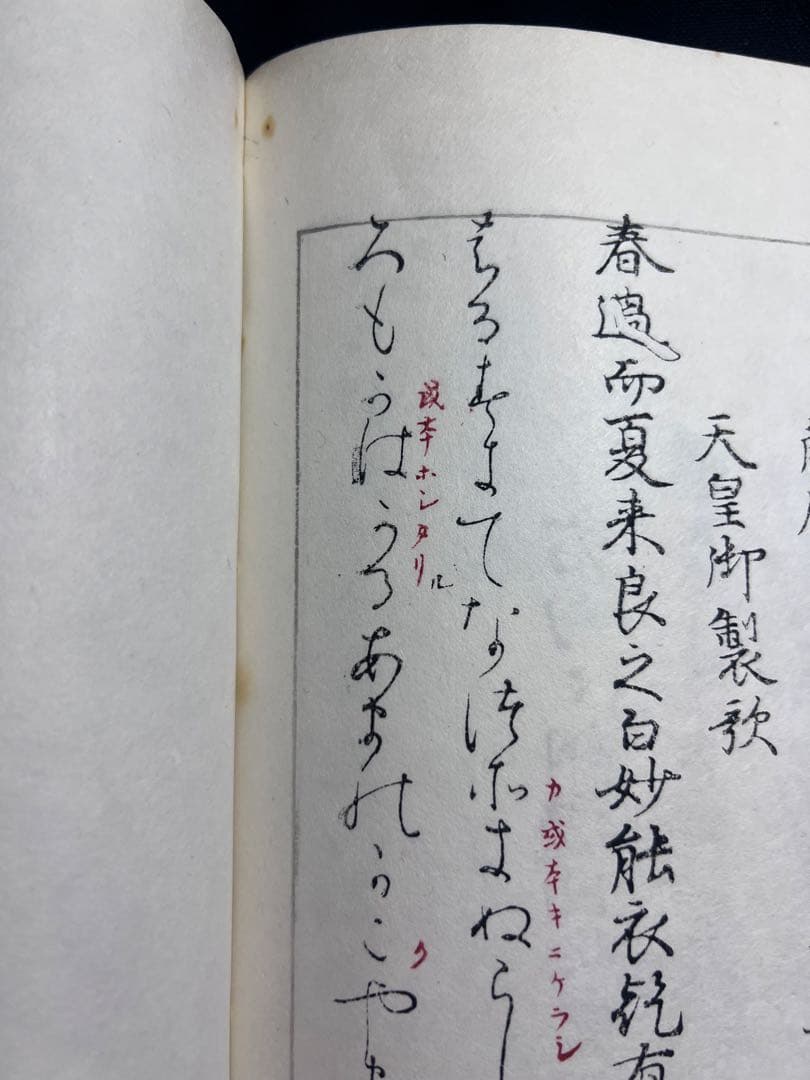 天皇御製歌
春過而夏来良之白妙能衣乾有
カ或本キニケラシ
はるすきてなつそきぬらし
或本ホシタリル
ろもかはかるあまのかこやま
ク